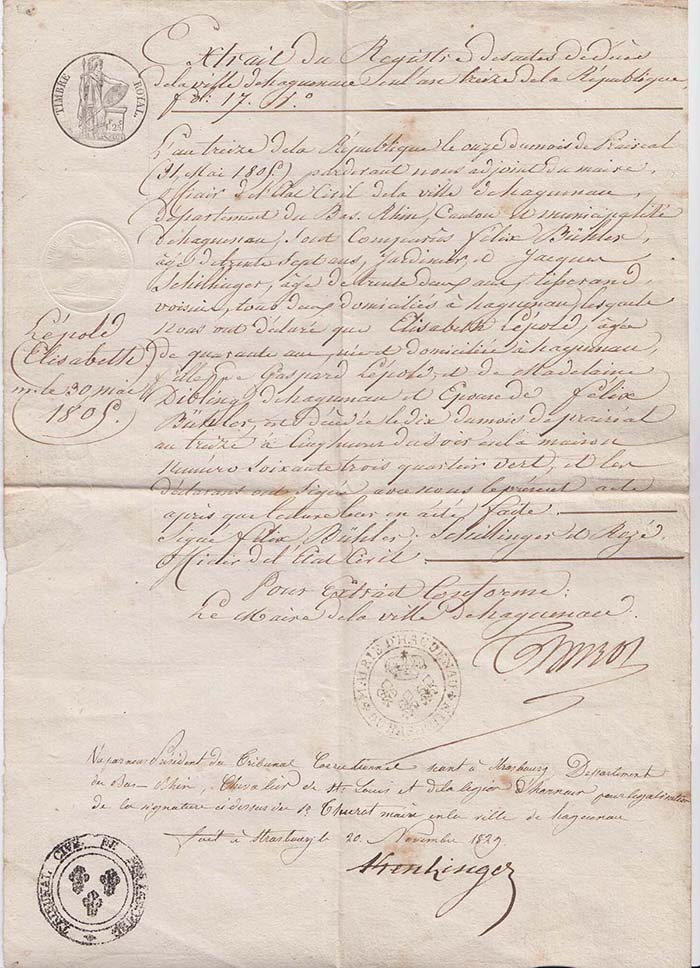 TIMBRE ROYAL
Extrait du Registre des actes de décè
de la ville d'haguenau en l'an treize de la République,
L'an treize de la République le onze du mois de Prairial
(31 Mai 1805) pardevant nous adjoint du maire,
officier de l'Etat Civil de la ville d'haguenau,
département du Bas-Rhin, Canton et municipalité
d'haguenau, sont Comparûs félix Bühler,
âgé de trente sept ans, jardinier, et Jacques
Schillinger, âgé de trente deux ans, tisserand
voisin, tous deux domiciliés à haguenau, lesquels
nous ont déclaré que Elisabeth Lépold, âgée
de quarante ans, née et domiciliée à haguenau,
fille de Gaspard Lépold, et de Madelaine
Dibling d'haguenau et Epouse de félix
Bühler, est décédée le dix du mois de prairial
an treize à Cinq heures du Soir en la maison
numéro soixante trois quartier vert, et les
déclarans ont Signé, avec nous le présent acte
après que lecture leur en a été faite.
Signé félix Bühler, Schillinger et
officier de l'Etat Civil.
Lépold
Elisabeth
m. le 30 mai
1805.
Pour Extrait Conforme:
Le Maire de la ville d'haguenau.
MAIRIE D'HAGUENAU
BAS-RHIN
Vu par nous Président du Tribunal Correctionnel séant à Strasbourg Département
du Bas-Rhin, Chevalier de St. Louis et de la légion d'honneur pour légalisation
de la signature ci dessus du Sr. Thurot maire en la ville de haguenau
fait à Strasbourg le 20. Novembre 1829
TRIBUNAL CIVIL DE STRASBOURG